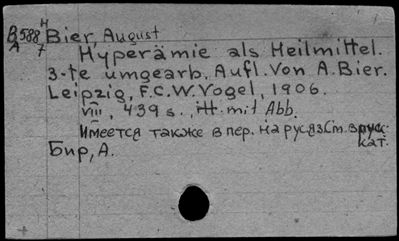 H
B588 Bier, August
A 7
Hyperämie als Heilmittel.
3-te umgearb. Aufl. Von A. Bier.
Leipzig, F.C.W. Vogel, 1906.
VIII, 439 s., mit Abb.
Имеется также в пер. на рус.яз. См. в рус.
кат.
Бир, А.